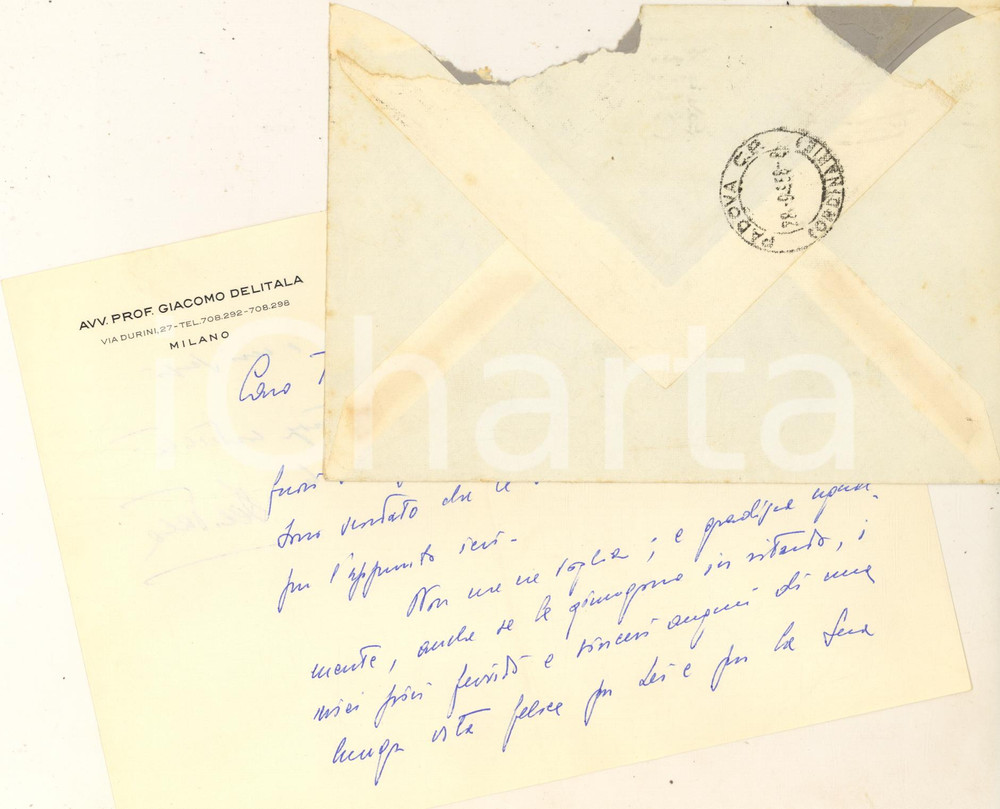 AVV. PROF. GIACOMO DELITALA
VIA DURINI, 27 - TEL. 708.292 - 708.298
MILANO
PADOVA C.P. (ORDINARIE)
iCharta
Caro T
fuori
sono ricordato che le
per l'appunto ieri -
Non me ne voglia; e gradisca ugual-
mente, anche se le giungono in ritardo, i
miei più fervidi e sinceri auguri di una
lunga vita felice per Lei e per la Sua